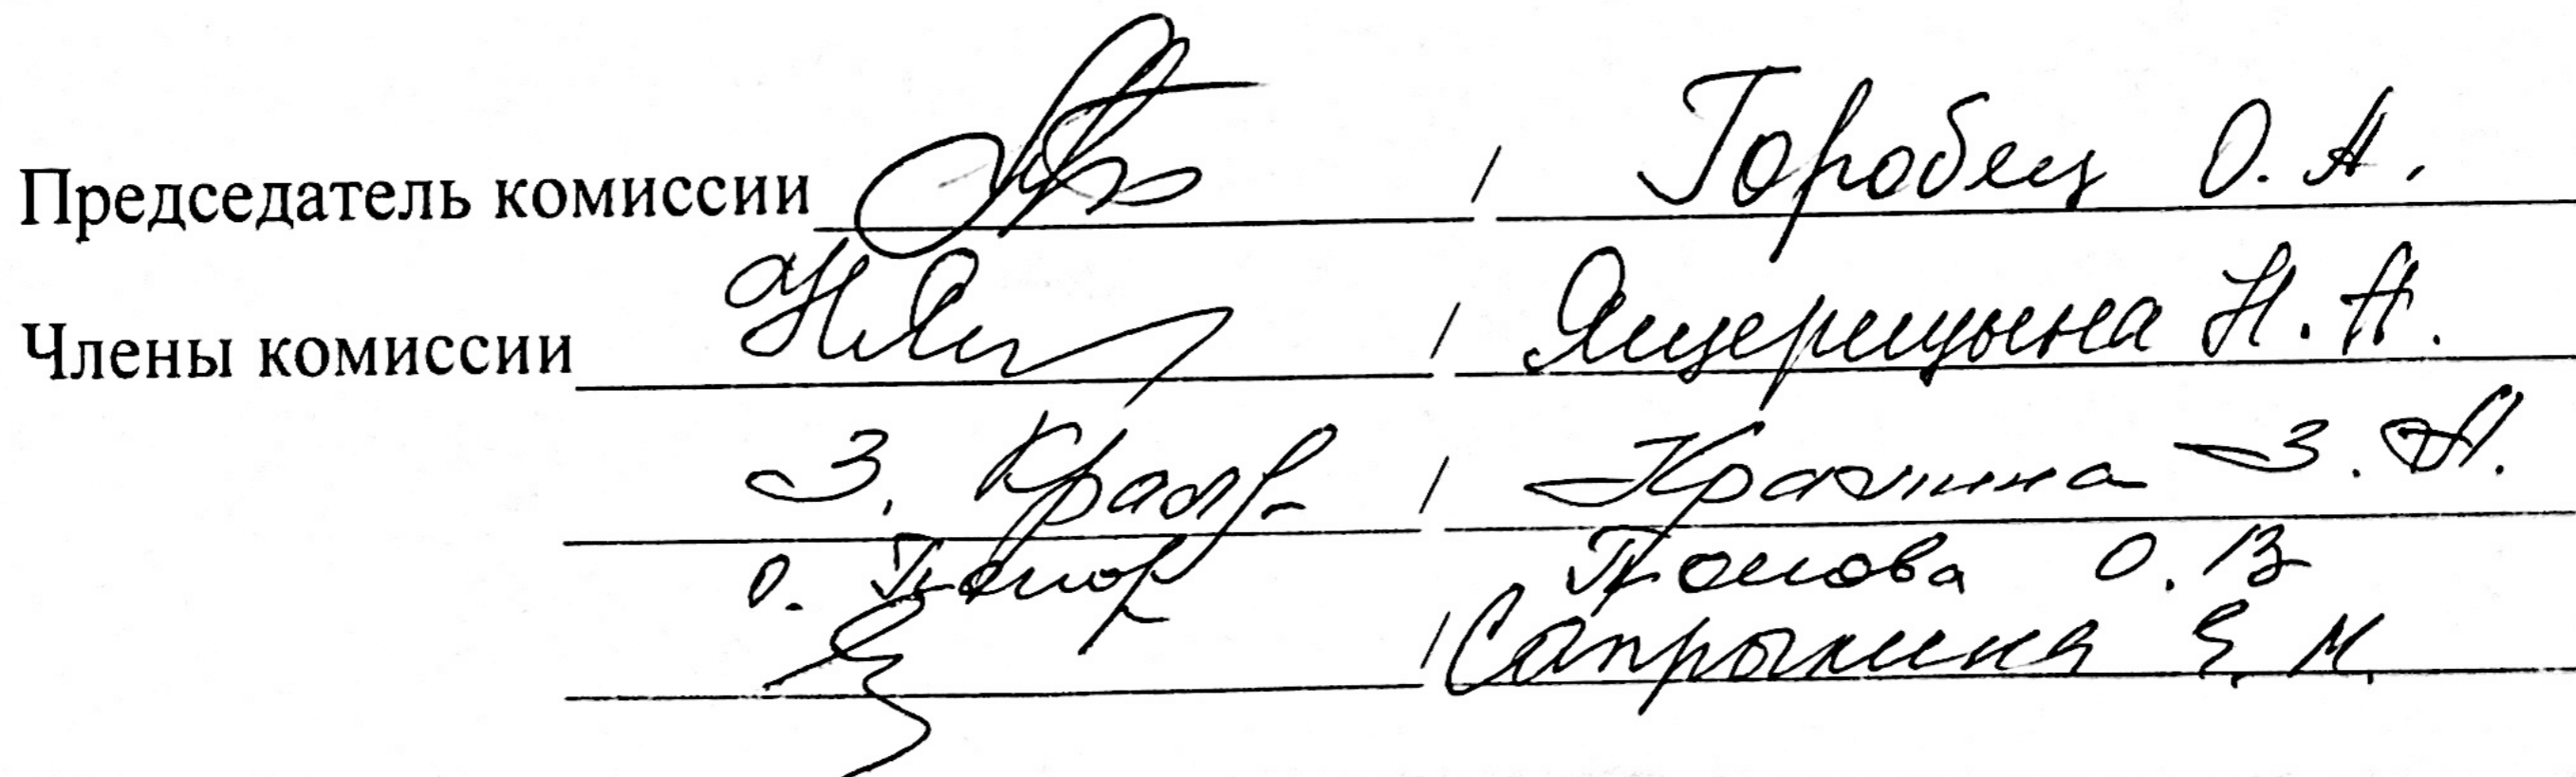 Председатель комиссии / Горобец О. А.
Члены комиссии / Ящерицына Н. А.
З. / З. А.
О. Попова О. В
/ Сапрыкина Е. М.